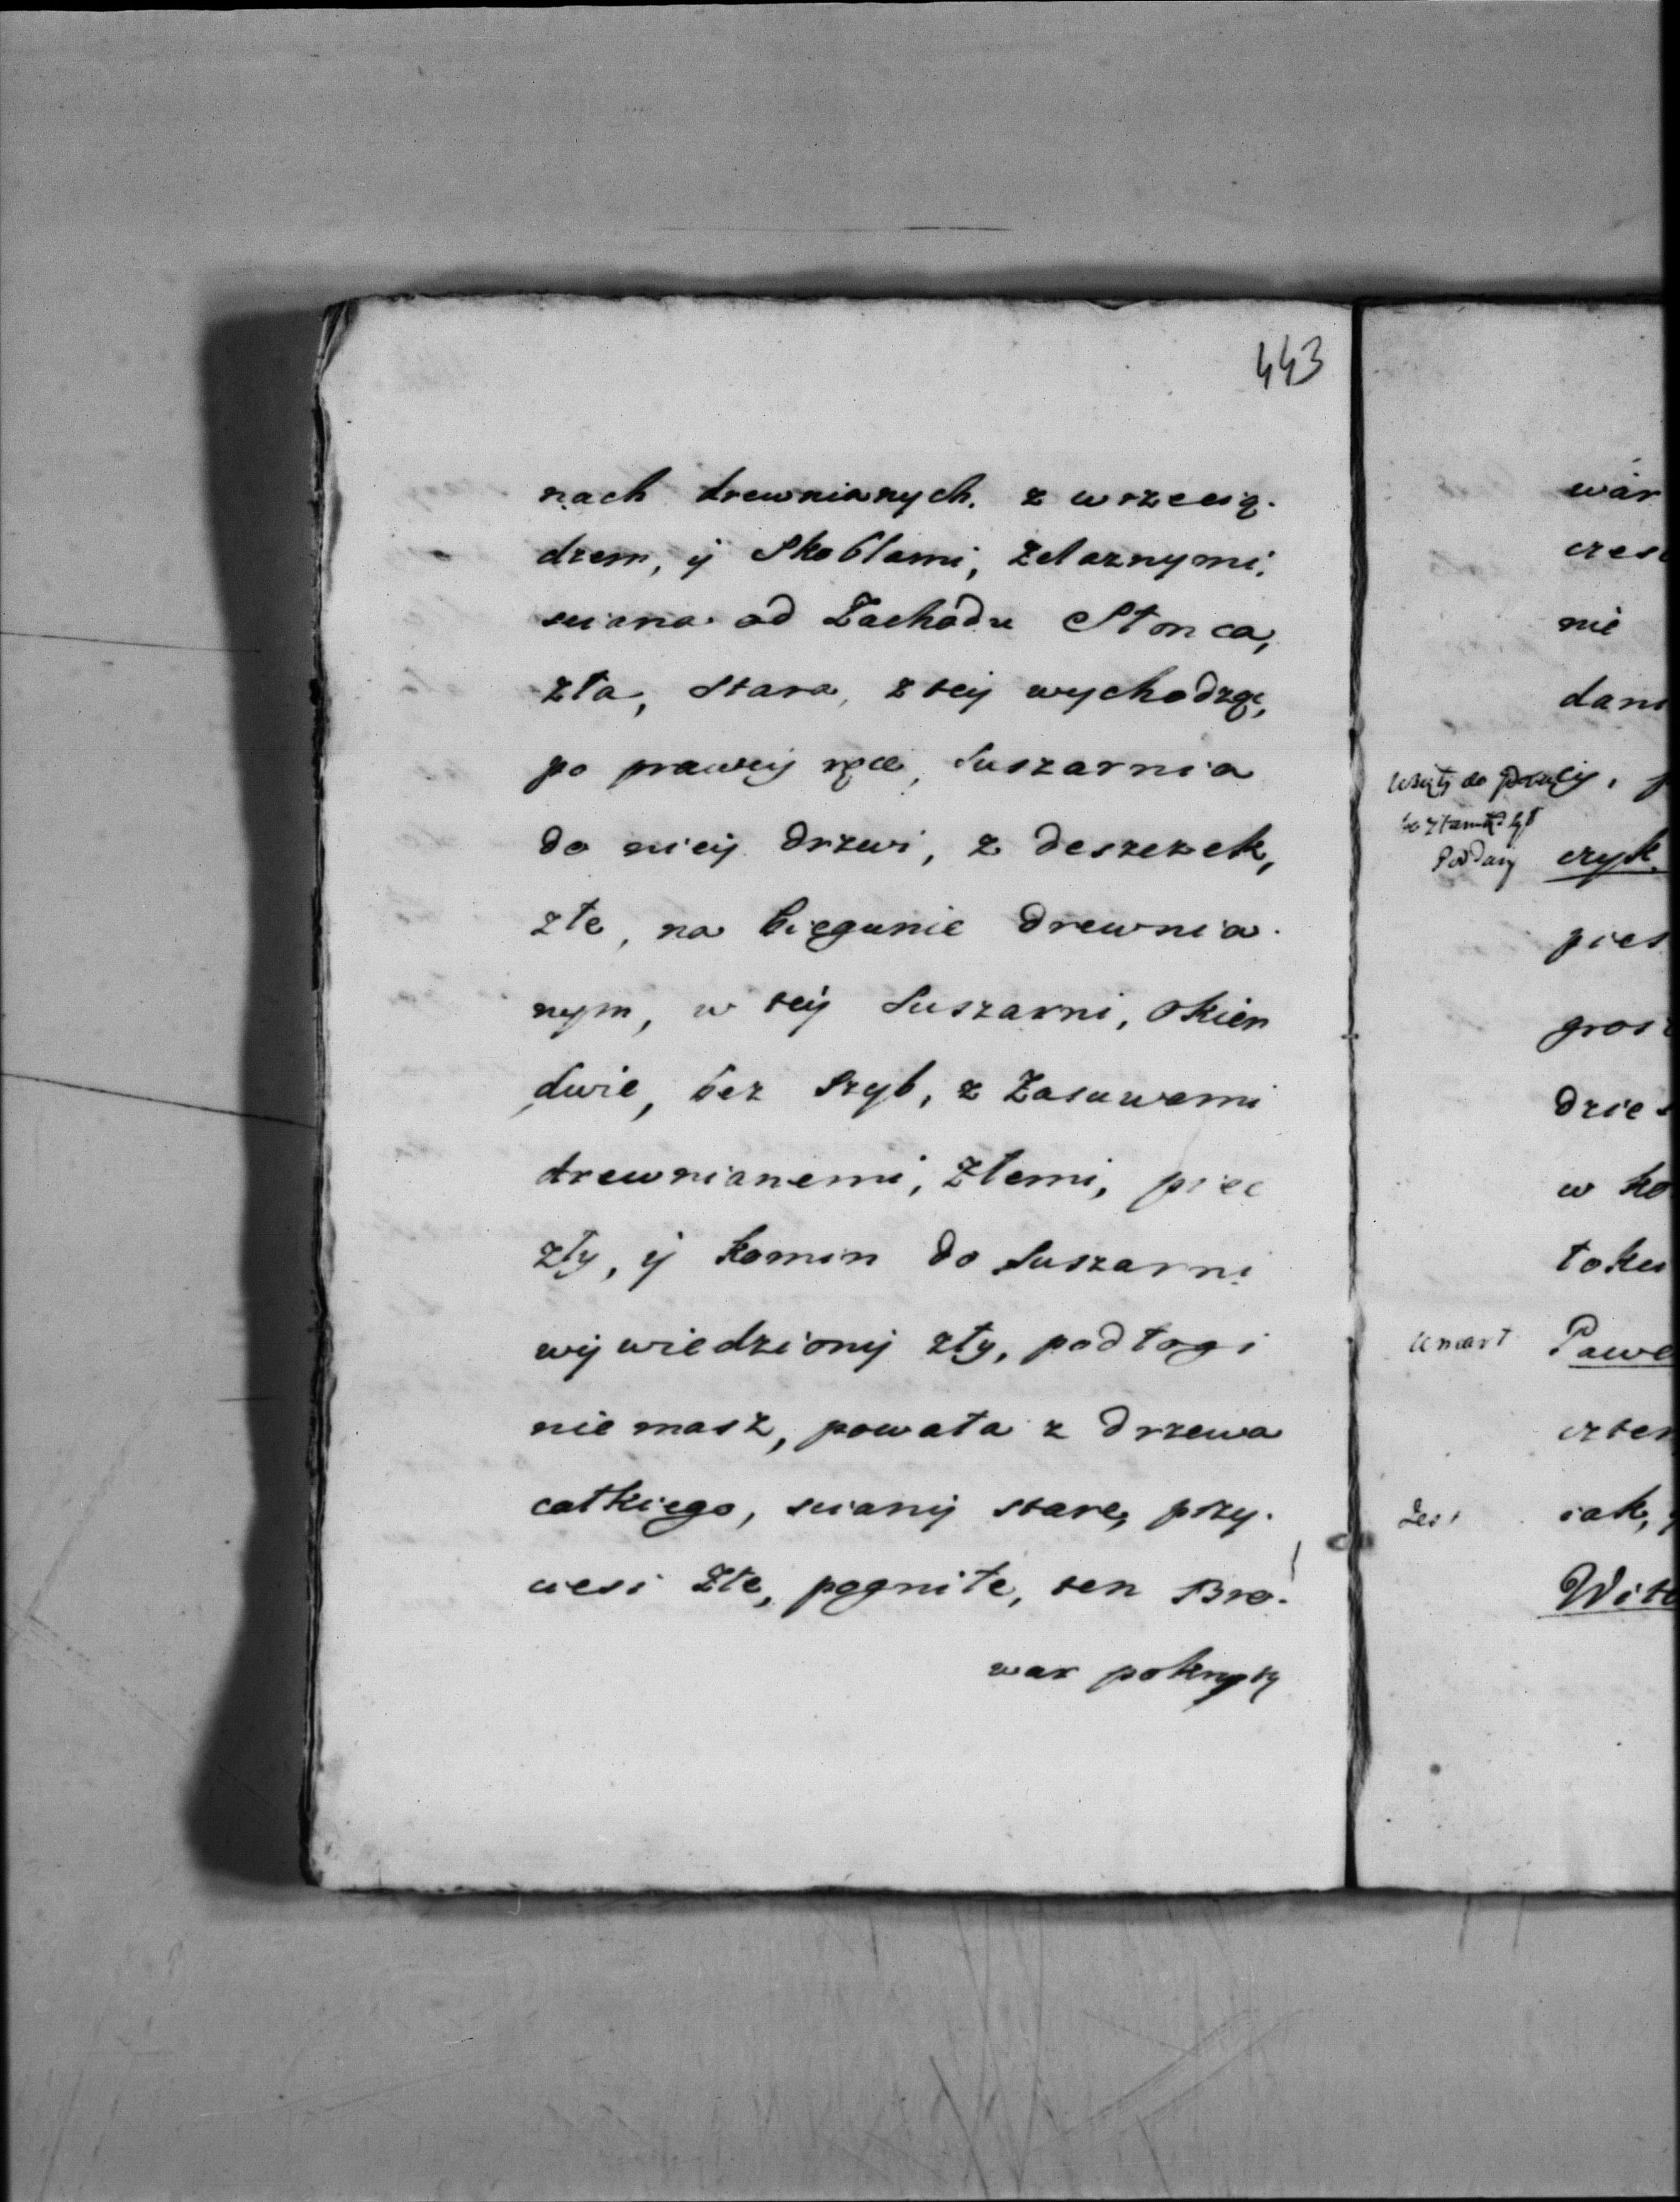 443
nach drewnianych. z wrzecią.
dzem, ÿ Skoblami, Zelaznymi.
sciana od Zachodu Słonca,
zła, stara, z teÿ wychodząc,
po praweÿ ręce, Suszarnia
do nieÿ drzwi, z deszczek,
złe, na biegunie drewnia.
nym, w teÿ Suszarni, okien
dwie, bez Szyb, z Zasuwami
drewnianemi, Złemi, piec
zły, ÿ komin do Suszarni
wÿwiedzionÿ zły, podłogi
nie masz, powała z drzewa
całkiego, scianÿ stare, przy.
ciesi Złe, pogniłe, ten Bro.
war pokryty
war
czes
nie
dani
czyk.
pies
gros
dzies
w ko
toku
umarł Pawe
czter
Jest iak,
Wito